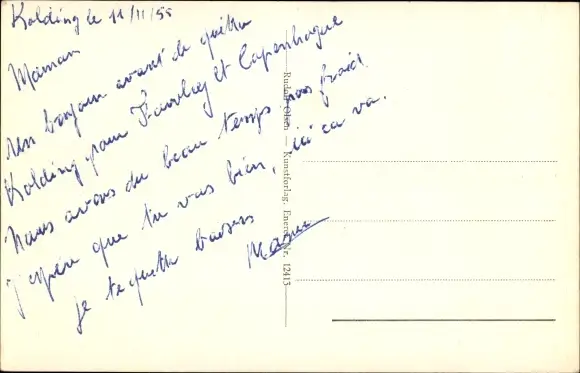 Kolding le 11/11/55
Maman
Un bonjour avant de quitter
Kolding pour Faaborg et Copenhague
Nous avons du beau temps pas froid.
J'espère que tu vas bien, ici ça va.
je te quitte baisers
Rudolf Olsen — Kunstforlag. Eneret Nr. 12415